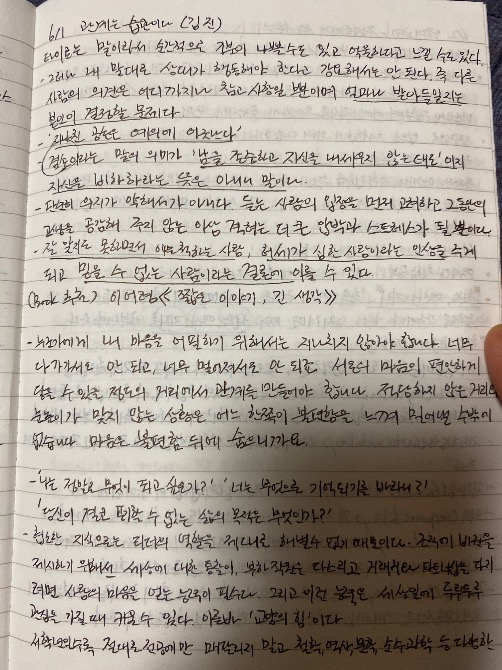 6/1 관계는 습관이다 (김진)
타이르는 말이라서 순간적으로 기분이 나쁠수도 있고 억울하다고 느낄 수도 있다.
- 그러나 내 말대로 상대가 행동해야 한다고 강요해서는 안 된다. 즉 다른
사람의 의견은 어디까지나 참고사항일 뿐이며 얼마나 받아들일지는
본인이 결정할 문제다
- '지나친 공손은 예의에 어긋난다'
- 겸손이라는 말의 의미가 '남을 존중하고 자신을 내세우지 않는 태도'이지
자신을 비하하라는 뜻은 아니니 말이다.
- 단순히 의지가 약해서가 아니다. 듣는 사람의 입장을 먼저 고려하고 그동안의
고생을 공감해 주지 않는 이상 격려는 더 큰 압박과 스트레스가 될 뿐이다.
- 잘 알지도 못하면서 아는 척하는 사람, 허세가 심한 사람이라는 인상을 주게
되고 믿을 수 없는 사람이라는 결론에 이를 수 있다.
(Book 추천) 이어령 《짧은 이야기, 긴 생각》
- 누군가에게 내 마음을 어필하기 위해서는 지나치지 않아야 합니다. 너무
다가가서도 안 되고, 너무 멀어져서도 안 되죠. 서로의 마음이 편안하게
닿을 수 있는 정도의 거리에서 관계를 만들어야 합니다. 적당하지 않은 거리와
눈높이가 맞지 않는 상황은 어느 한쪽이 불편함을 느껴 밀어낼 수밖에
없습니다. 마음은 불편함 뒤에 숨으니까요.
- '나는 정말로 무엇이 되고 싶은가?' '너는 무엇으로 기억되기를 바라니?'
'당신이 결코 포기할 수 없는 삶의 목적은 무엇인가?'
- 협소한 지식으로는 리더의 역할을 제대로 해낼 수 없기 때문이다. 조직에 비전을
제시하기 위해선 세상에 대한 통찰이, 부하직원을 다스리고 거래처와 파트너십을
려면 사람의 마음을 얻는 능력이 필수다. 그리고 이런 능력은 세상일에 두루두루
관심을 가질 때 키울 수 있다. 이른바 '교양의 힘'이다.
저학년일수록 절대로 전공에만 매달리지 말고 철학, 역사, 문학, 순수과학 등 다양한